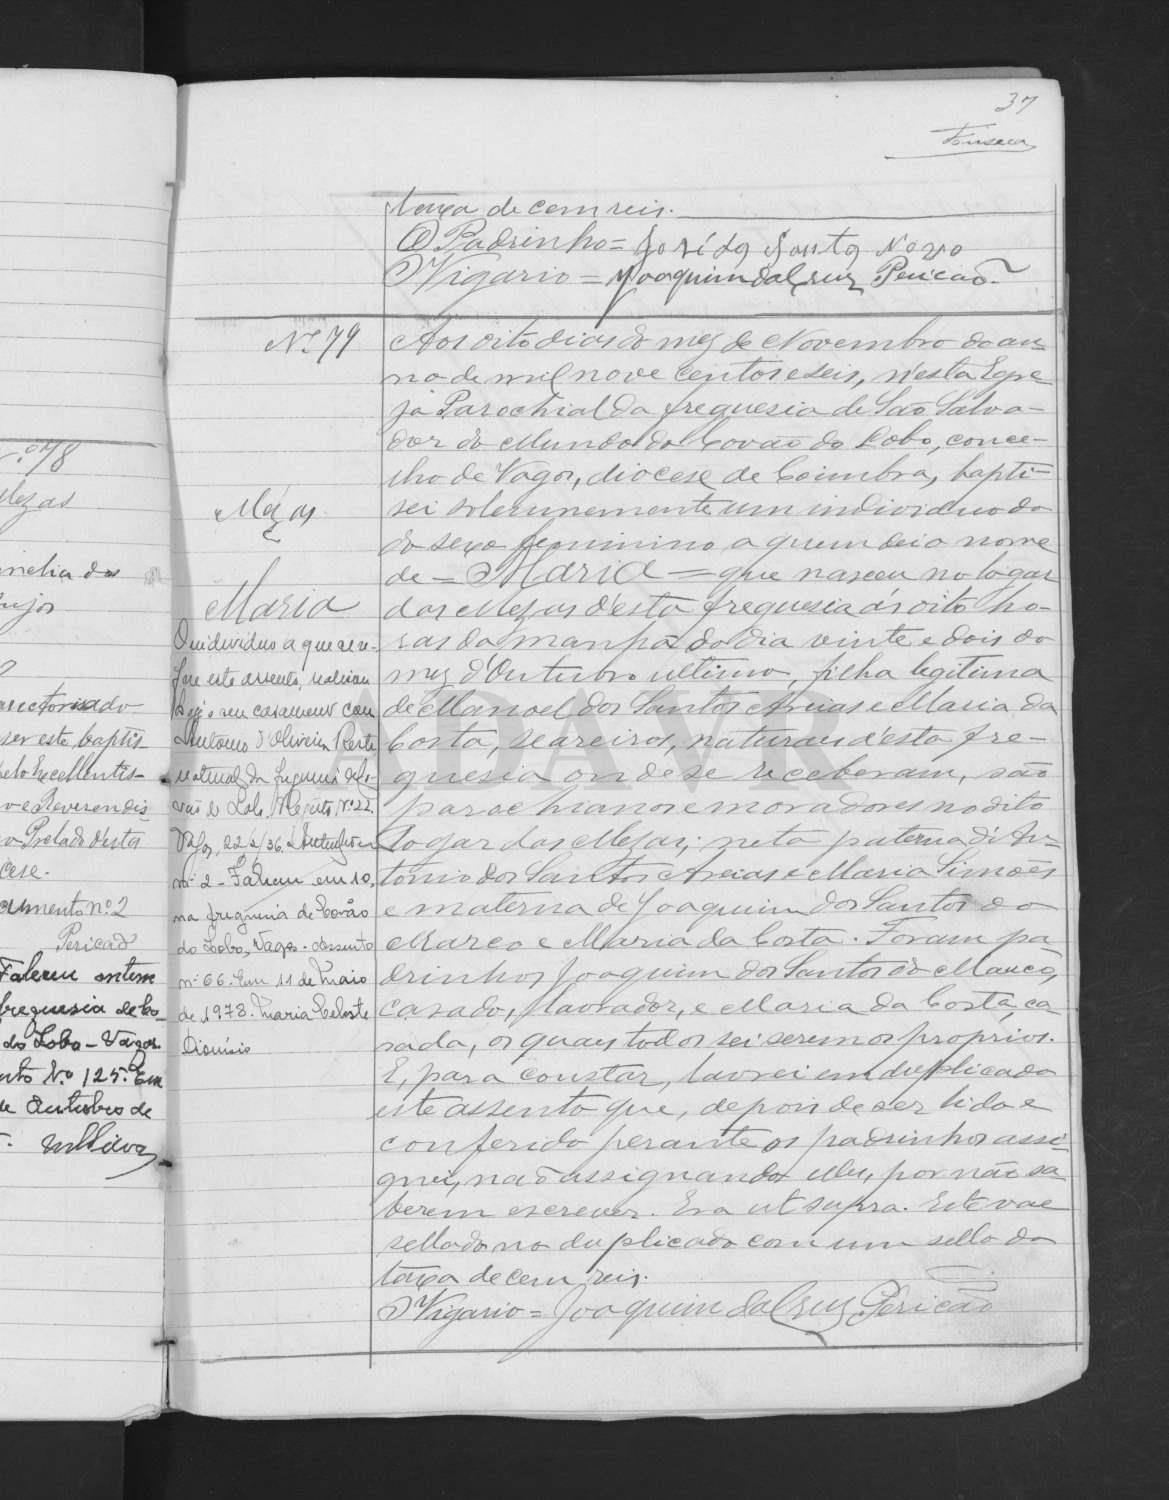 37
Fonseca
taxa de cem reis.
O Padrinho = José da Santa Novo
O Vigario = Joaquim da Cruz Pericão
Nº 79
Mezas
Maria
O individuo a que se re-
fere este assento, realisou
hoje o seu casamento com
Antonio d'Oliveira
natural da freguesia de Co-
vão do Lobo. Registo Nº 22.
Vagos, 22/ /36.
nº 2 - Faleceu em 10,
na freguesia de Covão
do Lobo, Vagos. Assento
nº 66. Em 11 de Maio
de 1978. Maria Celeste
Dionísio
Aos oito dias do mez de Novembro do an-
no de mil nove centos e seis, n'esta Egre
ja Parochial da freguesia de São Salva-
dor do Mundo do Covão do Lobo, conce-
lho de Vagos, diocese de Coimbra, bapti-
sei solemnemente um individuo do
do sexo feminino a quem dei o nome
de = Maria = que nasceu no logar
das Mezas d'esta freguesia ás oito ho-
ras da manhã do dia vinte e dois do
mez d'Outubro ultimo, filha legitima
de Manoel dos Santos Areias e Maria da
Costa, seareiros, naturaes d'esta fre-
guesia onde se receberam, são
parochianos e moradores no dito
logar das Mezas; neta paterna di An-
tonio dos Santos Areias e Maria Simões
e materna de Joaquim dos Santos do o
Marco e Maria da Costa. Foram pa
drinhos Joaquim dos Santos do Marco,
casado, lavrador, e Maria da Costa, ca
sada, os quaes todos sei serem os proprios.
E, para constar, lavrei em duplicado
este assento que, depois de ser lido e
conferido perante os padrinhos assi-
gnei, não assignando elles, por não sa
berem escrever. Era ut supra. Este vae
sellado no duplicado com um sello da
taxa de cem reis.
O Vigario = Joaquim da Cruz Pericão
ADAVR
nº 78
Mezas
auctorisado
ser este baptis-
pelo Excellentis-
mo e Reverendis
mo Prelado d'esta
cese.
cumento nº 2
Pericão
Faleceu ontem
freguesia de Co-
do Lobo - Vagos.
nto Nº 125. Em
de Outubro de